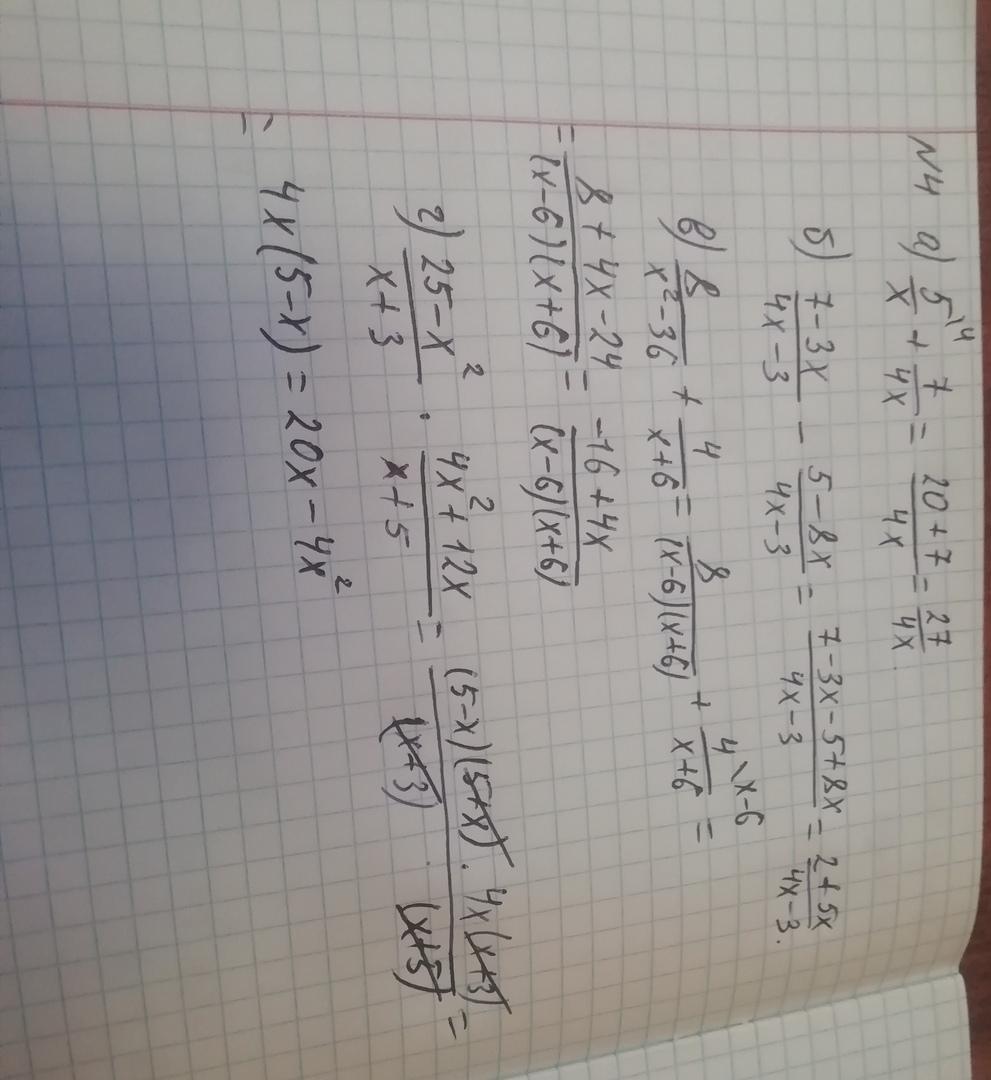 N4 а) 5/x \4 + 7/4x = (20+7)/4x = 27/4x.
б) (7-3x)/(4x-3) - (5-8x)/(4x-3) = (7-3x-5+8x)/(4x-3) = (2+5x)/(4x-3).
в) 8/(x²-36) + 4/(x+6) = 8/((x-6)(x+6)) + 4\x-6/(x+6) =
= (8+4x-24)/((x-6)(x+6)) = (-16+4x)/((x-6)(x+6))
г) (25-x²)/(x+3) · (4x²+12x)/(x+5) = ((5-x)(5+x)·4x(x+3))/((x+3)·(x+5)) =
= 4x(5-x) = 20x-4x²